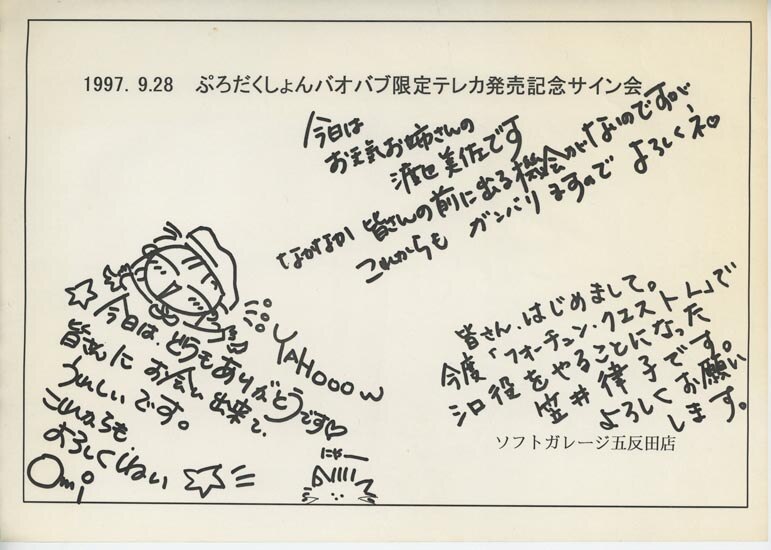 1997. 9.28　ぷろだくしょんバオバブ限定テレカ発売記念サイン会
今日は
お元気お姉さんの
渡辺美佐です
なかなか 皆さんの前に出る機会がないのですが、
これからも ガンバリますので よろしくネ♡
YAHOOO
今日は、どうもありがとうです♡
皆さんに お会い出来て、
うれしいです。
これからも、
よろしくしねい
Omi
にゃー
皆さん、はじめまして。
今度「フォーチュン・クエストL」で
シロ役をやることになった
笠井律子です。
よろしくお願い
します。
ソフトガレージ五反田店